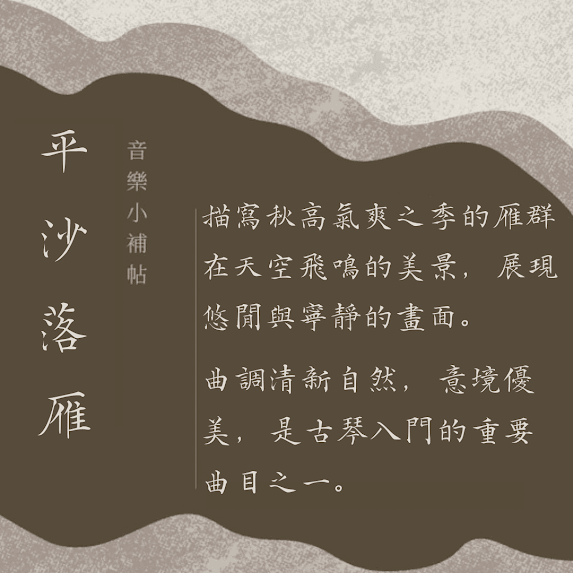 平沙落雁
音樂小補帖
描寫秋高氣爽之季的雁群
在天空飛鳴的美景，展現
悠閒與寧靜的畫面。
曲調清新自然，意境優
美，是古琴入門的重要
曲目之一。